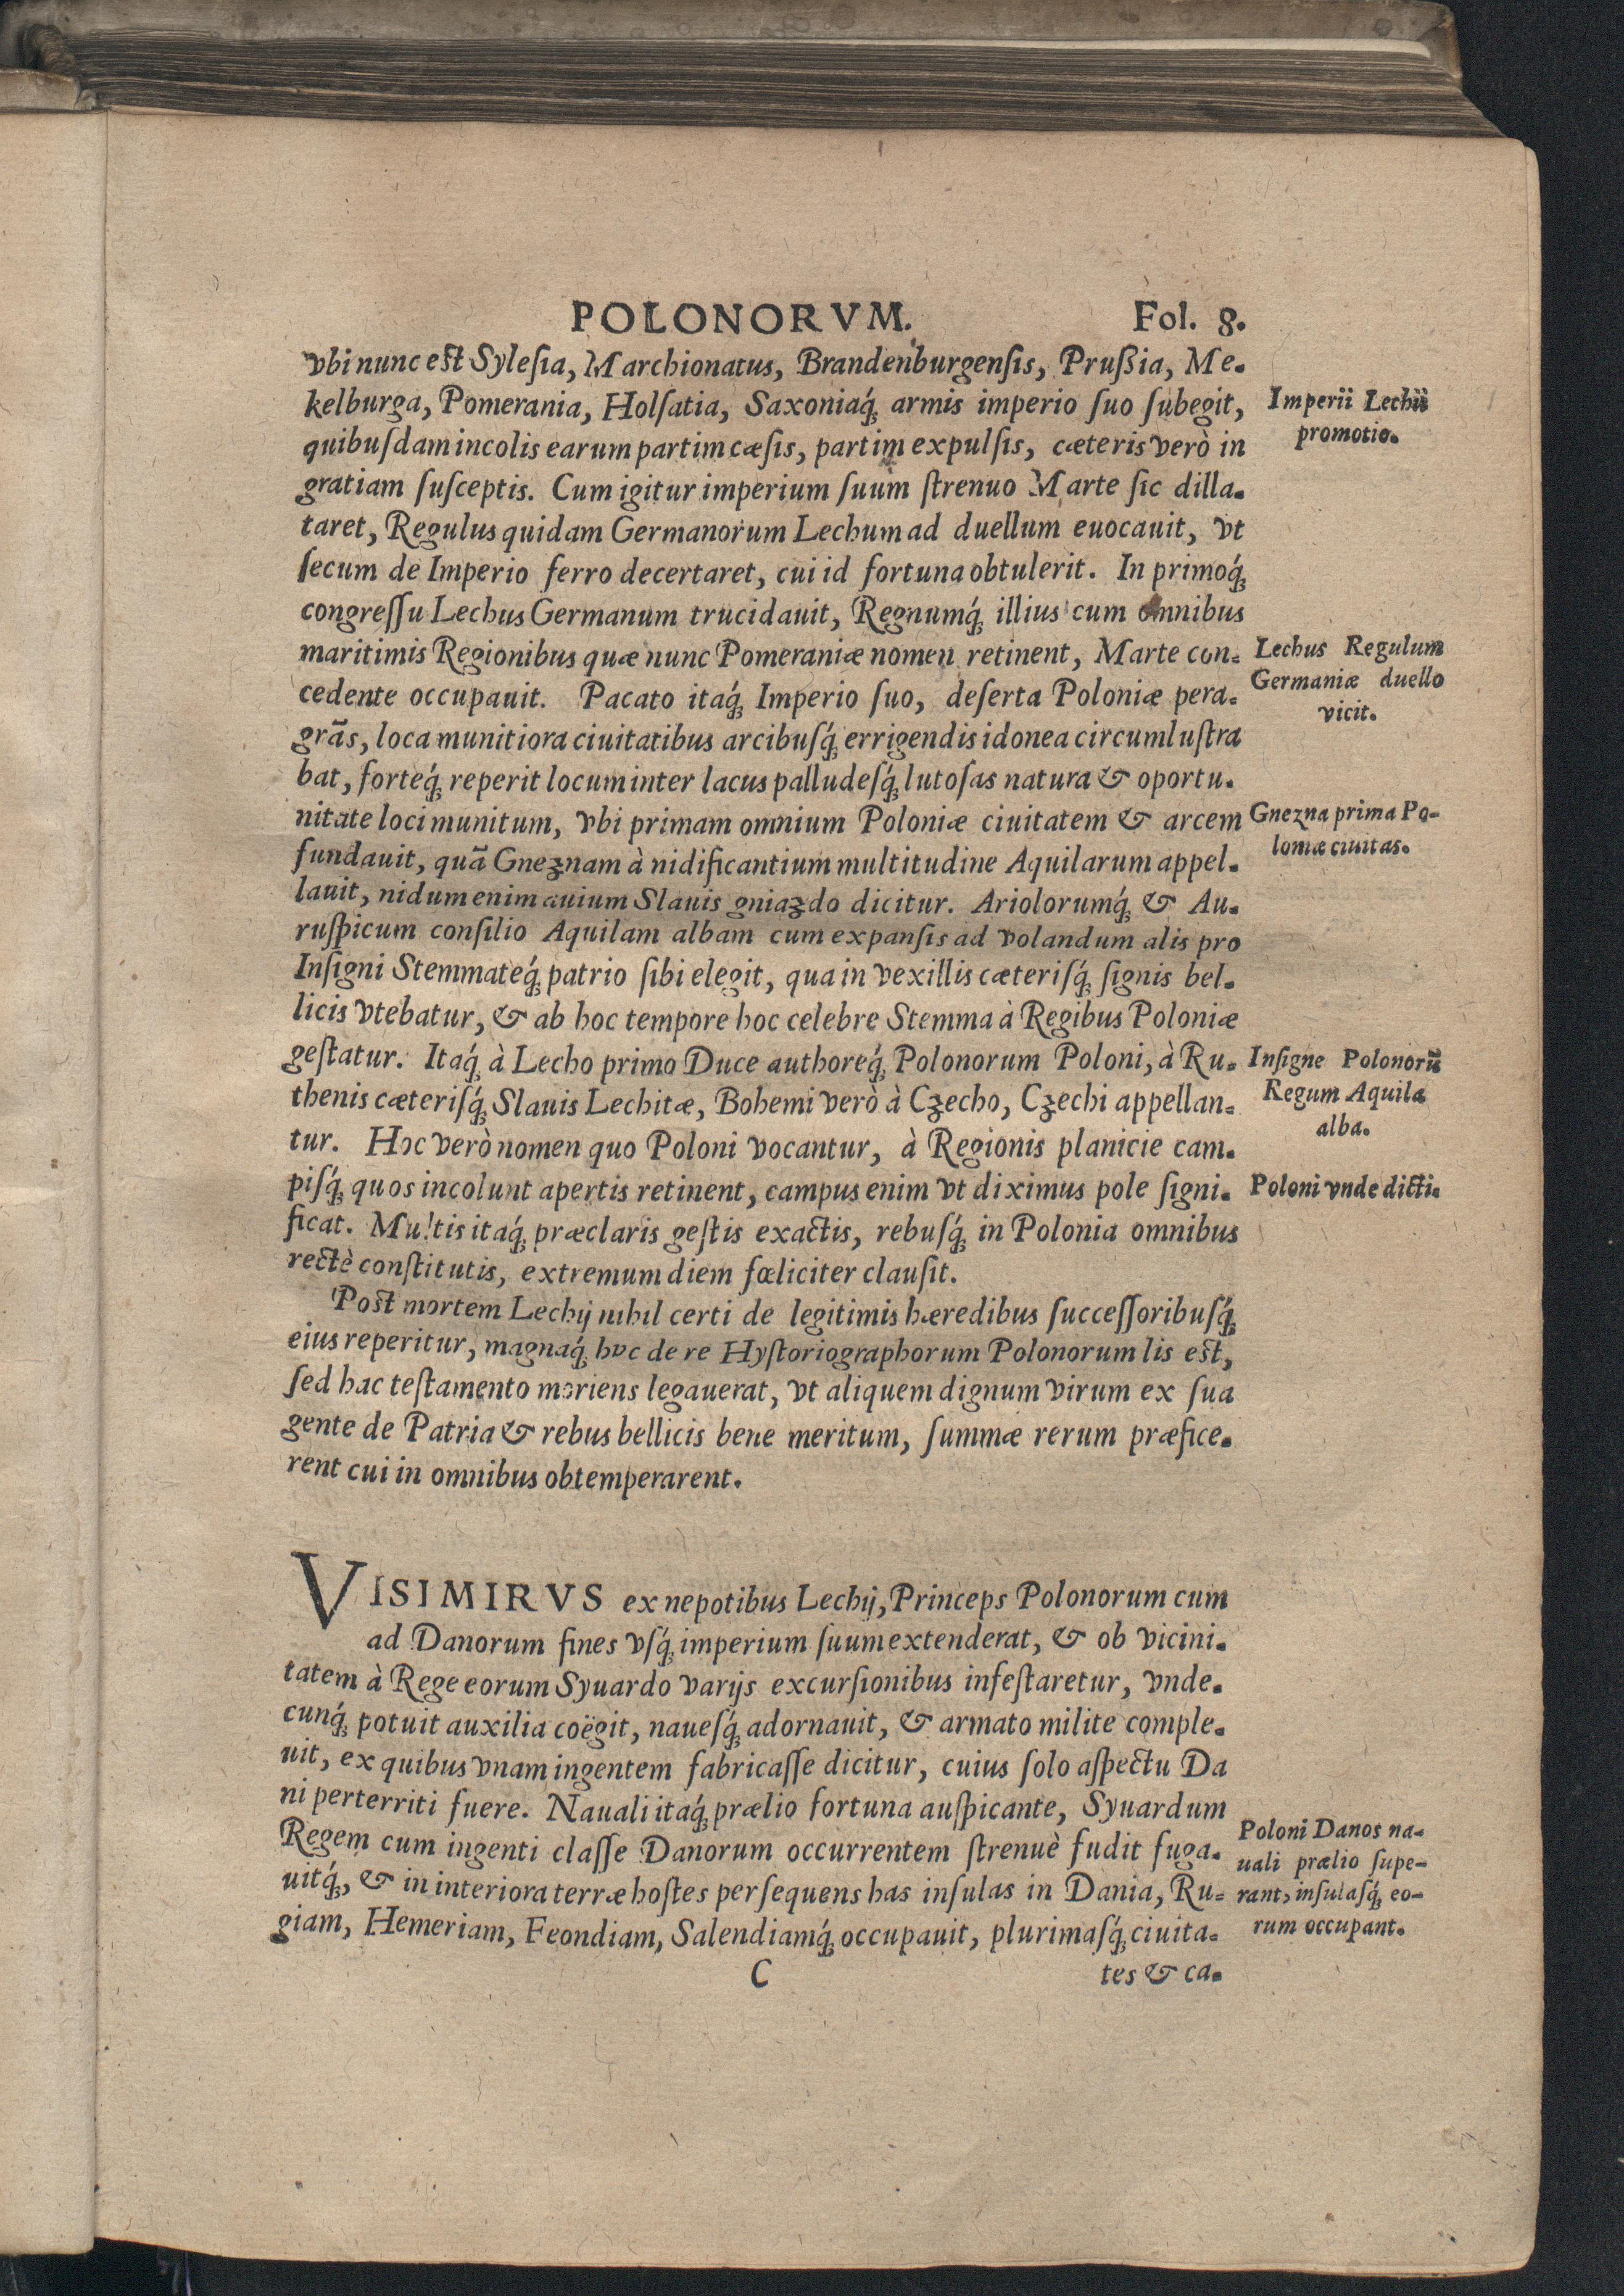 POLONORVM. Fol. 8.
vbi nunc est Sylesia, Marchionatus, Brandenburgensis, Prußia, Me-
kelburga, Pomerania, Holsatia, Saxoniaq́; armis imperio suo subegit,
Imperii Lechii
promotio.
quibusdam incolis earum partim cæsis, partim expulsis, cæteris verò in
gratiam susceptis. Cum igitur imperium suum strenuo Marte sic dilla-
taret, Regulus quidam Germanorum Lechum ad duellum euocauit, vt
secum de Imperio ferro decertaret, cui id fortuna obtulerit. In primoq́;
congressu Lechus Germanum trucidauit, Regnumq́; illius cum omnibus
maritimis Regionibus quæ nunc Pomeraniæ nomen retinent, Marte con-
Lechus Regulum
Germaniæ duello
vicit.
cedente occupauit. Pacato itaq́; Imperio suo, deserta Poloniæ pera-
grãs, loca munitiora ciuitatibus arcibusq́; errigendis idonea circumlustra
bat, forteq́; reperit locum inter lacus palludesq́; lutosas natura & oportu-
nitate loci munitum, vbi primam omnium Poloniæ ciuitatem & arcem
Gnezna prima Po-
loniæ ciuitas.
fundauit, quã Gneznam à nidificantium multitudine Aquilarum appel-
lauit, nidum enim auium Slauis gniazdo dicitur. Ariolorumq́; & Au-
ruspicum consilio Aquilam albam cum expansis ad volandum alis pro
Insigni Stemmateq́; patrio sibi elegit, qua in vexillis cæterisq́; signis bel-
licis vtebatur, & ab hoc tempore hoc celebre Stemma à Regibus Poloniæ
gestatur. Itaq́; à Lecho primo Duce authoreq́; Polonorum Poloni, à Ru-
Insigne Polonorũ
Regum Aquila
alba.
thenis cæterisq́; Slauis Lechitæ, Bohemi verò à Czecho, Czechi appellan-
tur. Hoc verò nomen quo Poloni vocantur, à Regionis planicie cam-
pisq́; quos incolunt apertis retinent, campus enim vt diximus pole signi-
Poloni vnde dicti.
ficat. Multis itaq́; præclaris gestis exactis, rebusq́; in Polonia omnibus
rectè constitutis, extremum diem fœliciter clausit.
Post mortem Lechij nihil certi de legitimis hæredibus successoribusq́;
eius reperitur, magnaq́; hac de re Hystoriographorum Polonorum lis est,
sed hac testamento moriens legauerat, vt aliquem dignum virum ex sua
gente de Patria & rebus bellicis bene meritum, summæ rerum præfice-
rent cui in omnibus obtemperarent.
VISIMIRVS ex nepotibus Lechij, Princeps Polonorum cum
ad Danorum fines vsq́; imperium suum extenderat, & ob vicini-
tatem à Rege eorum Syuardo varijs excursionibus infestaretur, vnde-
cunq́; potuit auxilia coëgit, nauesq́; adornauit, & armato milite comple-
uit, ex quibus vnam ingentem fabricasse dicitur, cuius solo aspectu Da
ni perterriti fuere. Nauali itaq́; prælio fortuna auspicante, Syuardum
Regem cum ingenti classe Danorum occurrentem strenuè fudit fuga-
Poloni Danos na-
uali prælio supe-
rant, insulasq́; eo-
rum occupant.
uitq́;, & in interiora terræ hostes persequens has insulas in Dania, Ru-
giam, Hemeriam, Feondiam, Salendiamq́; occupauit, plurimasq́; ciuita-
C tes & ca-